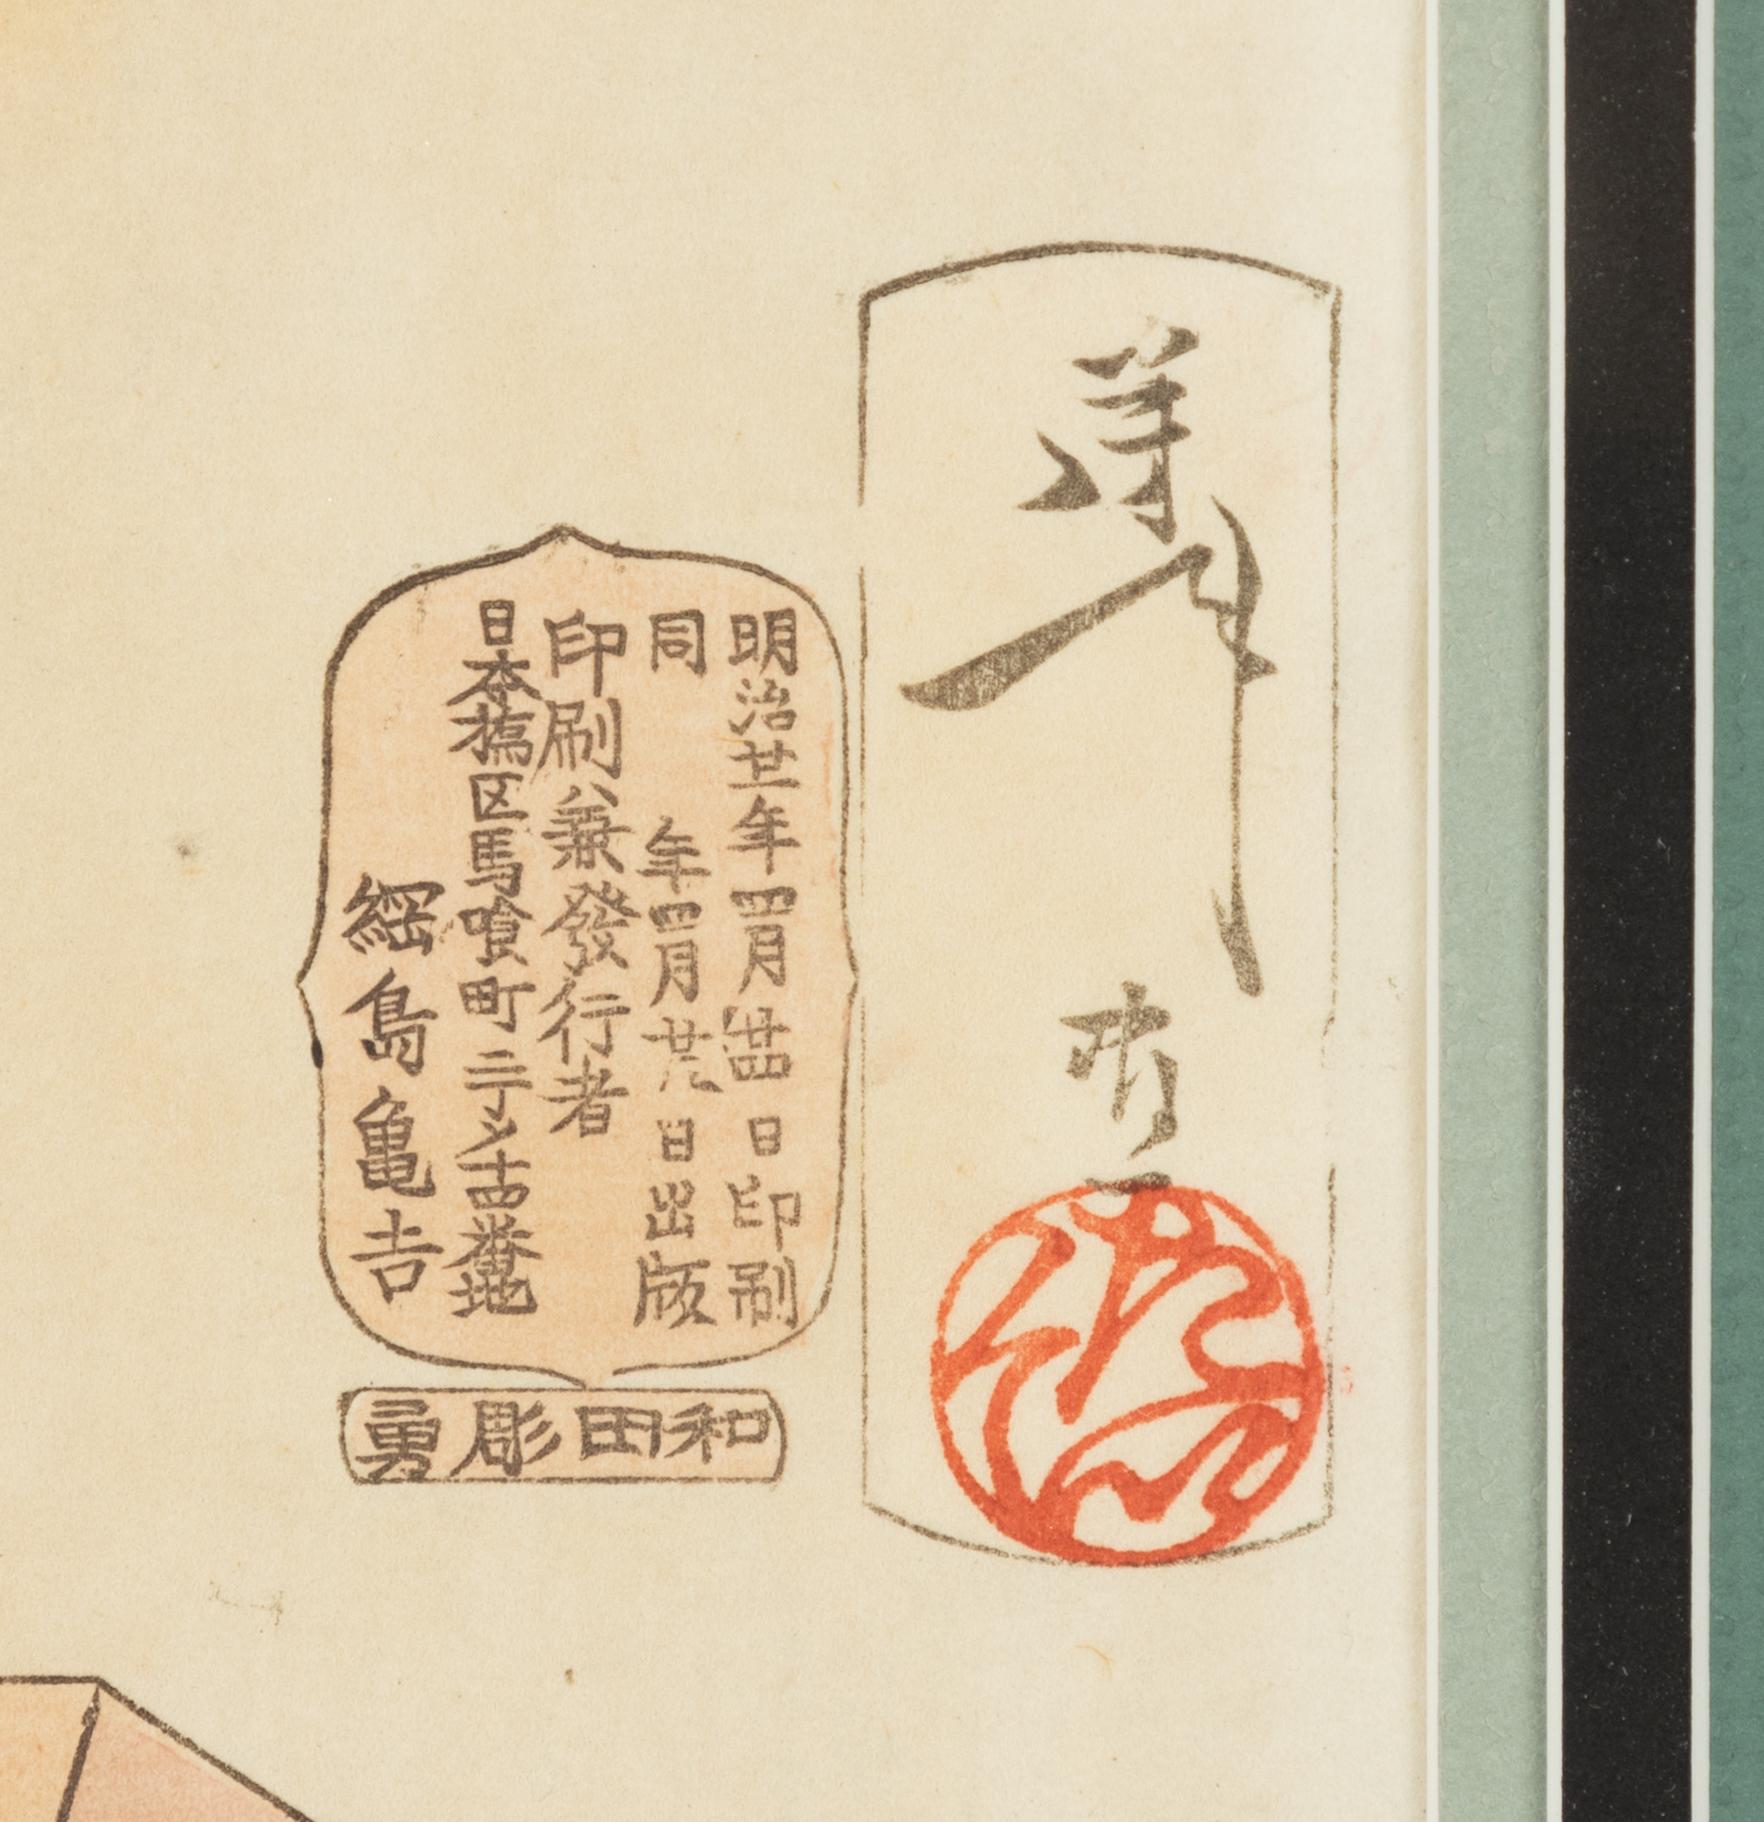 芳年画
明治廿一年四月廿四日印刷
同年四月廿八日出版
印刷兼發行者
日本橋区馬喰町二丁メ十四番地
綱島亀吉
和田彫勇